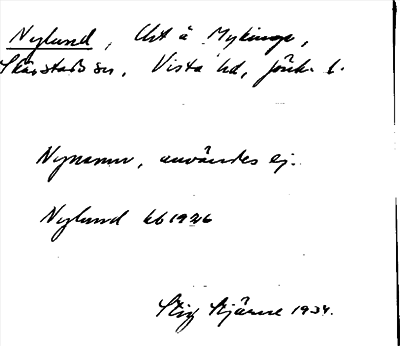 Nylund, Ust å Mykinge,
Skärstads sn, Vista hd, Jönk. l.
Nynamn, användes ej.
Nylund kb 1926
Stig Stjärne 1934.